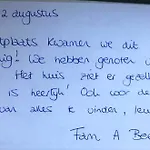 2 augustus
tplaats kwamen we dit
ig! We hebben genoten v
Het huis ziet er gezell
is heerlijk! Ook voor de
van alles te vinden, leu
Fam A Be